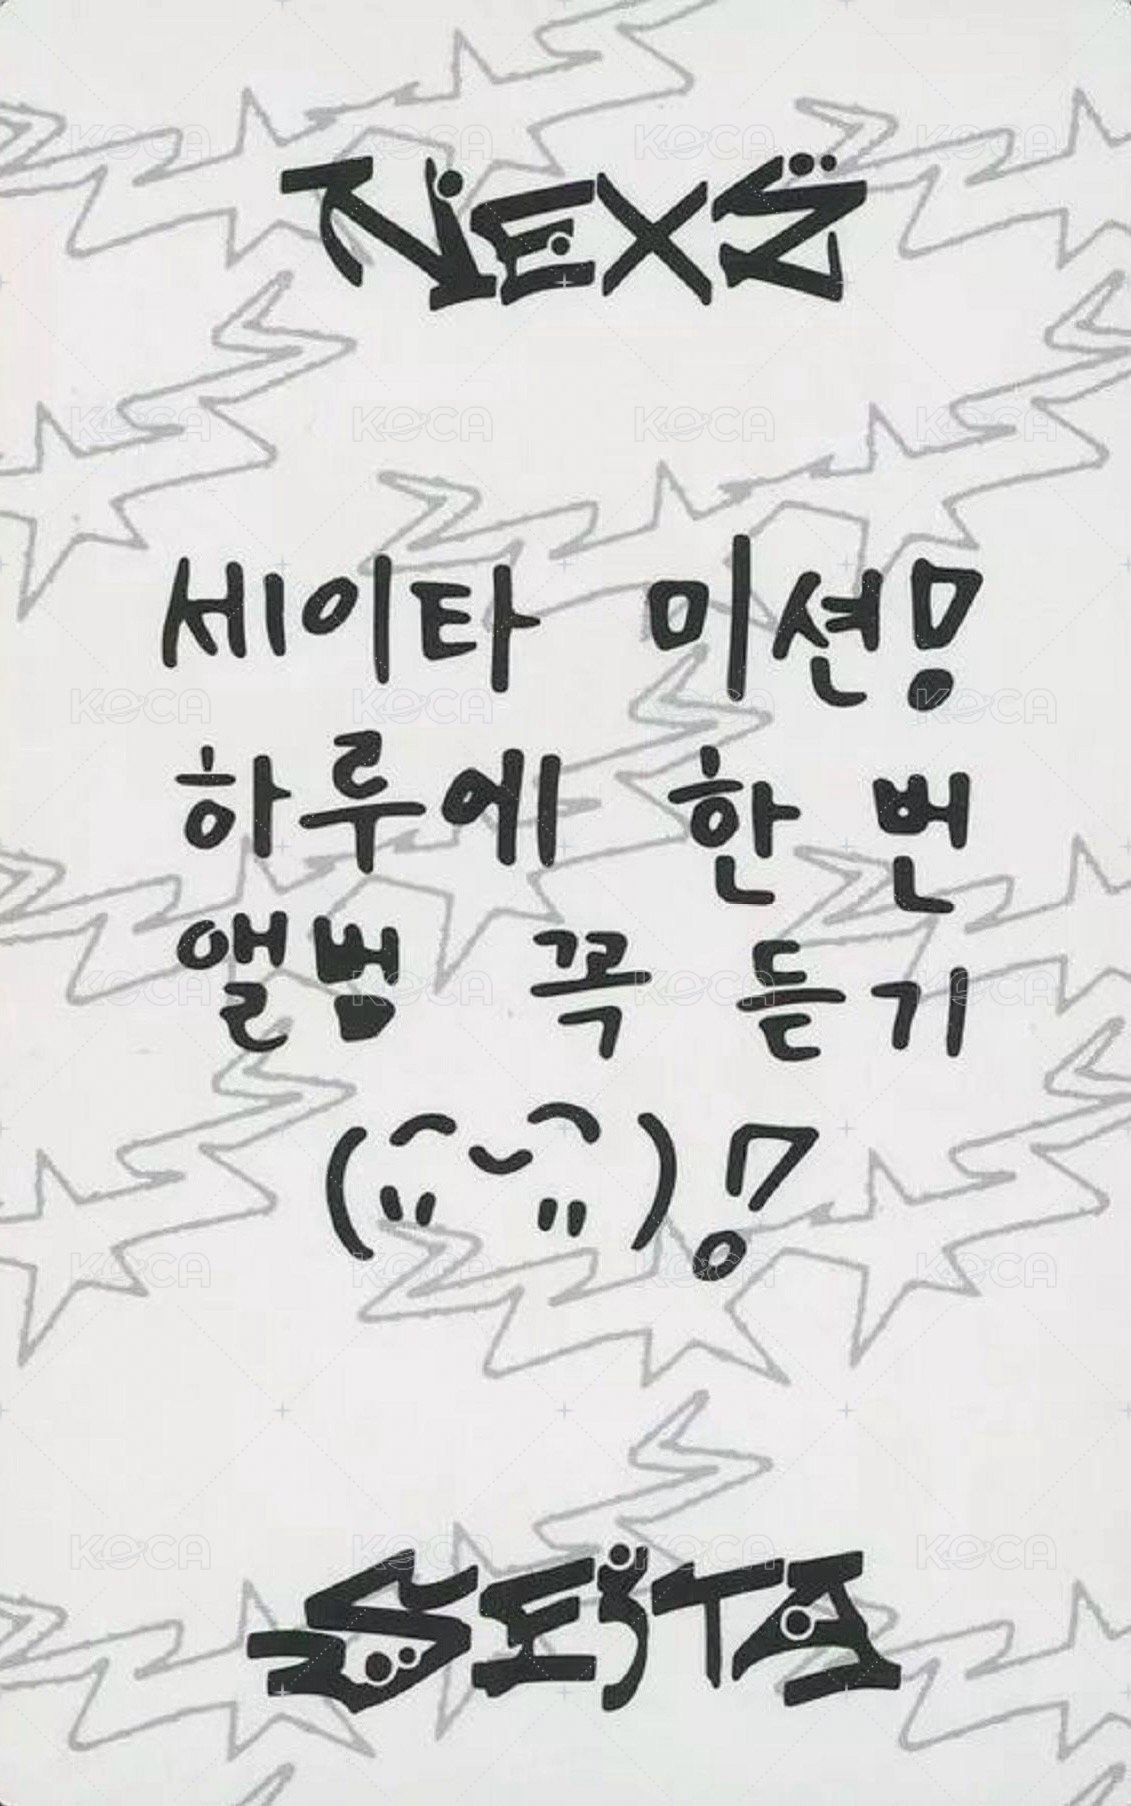 NEXZ
세이타 미션!
하루에 한 번
앨범 꼭 듣기
( ^ ᵕ ^ )!
SEITA
KOCA